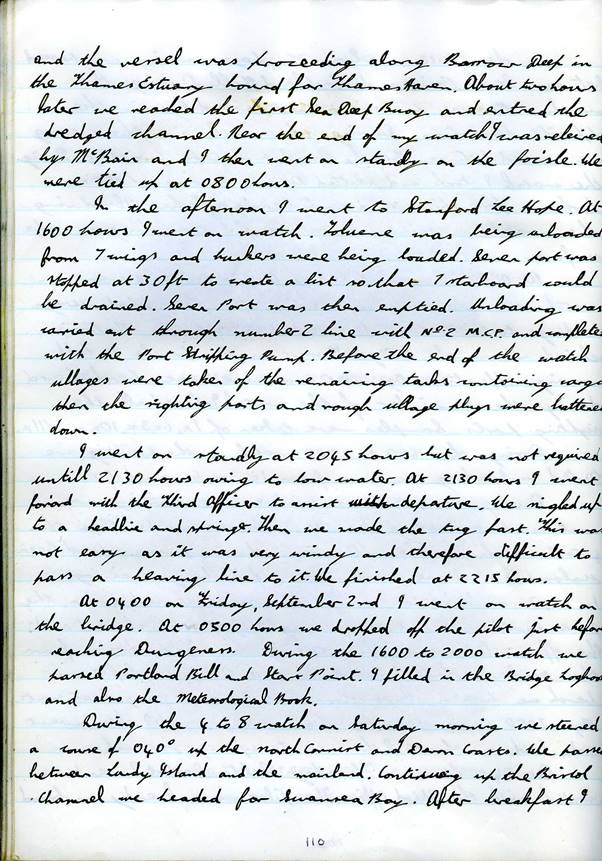 and the vessel was proceeding along Barrow Deep in
the Thames Estuary bound for Thames Haven. About two hours
later we reached the first Sea Deep Buoy and entred the
dredged channel. Near the end of my watch I was releived
by McBain and I then went on standby on the fo'c'sle. We
were tied up at 0800 hours.
In the afternoon I went to Stanford Lee Hope. At
1600 hours I went on watch. Toluene was being unloaded
from 7 wings and bunkers were being loaded. Seven port was
stopped at 30ft to create a list so that 7 starboard could
be drained. Seven Port was then emptied. Unloading was
carried out through number 2 line with No 2 M.C.P. and completed
with the Port Stripping Pump. Before the end of the watch
ullages were taken of the remaining tanks containing cargo
then the sighting ports and rough ullage plugs were battened
down.
I went on standby at 2045 hours but was not required
untill 2130 hours owing to low water. At 2130 hours I went
for'ard with the Third Officer to assist with departure. We singled up
to a headline and springs. Then we made the tug fast. This was
not easy as it was very windy and therefore difficult to
pass a heaving line to it. We finished at 2215 hours.
At 0400 on Friday, September 2nd I went on watch on
the bridge. At 0500 hours we dropped off the pilot just before
reaching Dungeness. During the 1600 to 2000 watch we
passed Portland Bill and Start Point. I filled in the Bridge Logbook
and also the Meteorological Book.
During the 4 to 8 watch on Saturday morning we steered
a course of 040° up the north Cornist and Devon Coasts. We passed
between Lundy Island and the mainland. Continuing up the Bristol
Channel we headed for Swansea Bay. After breakfast I
110